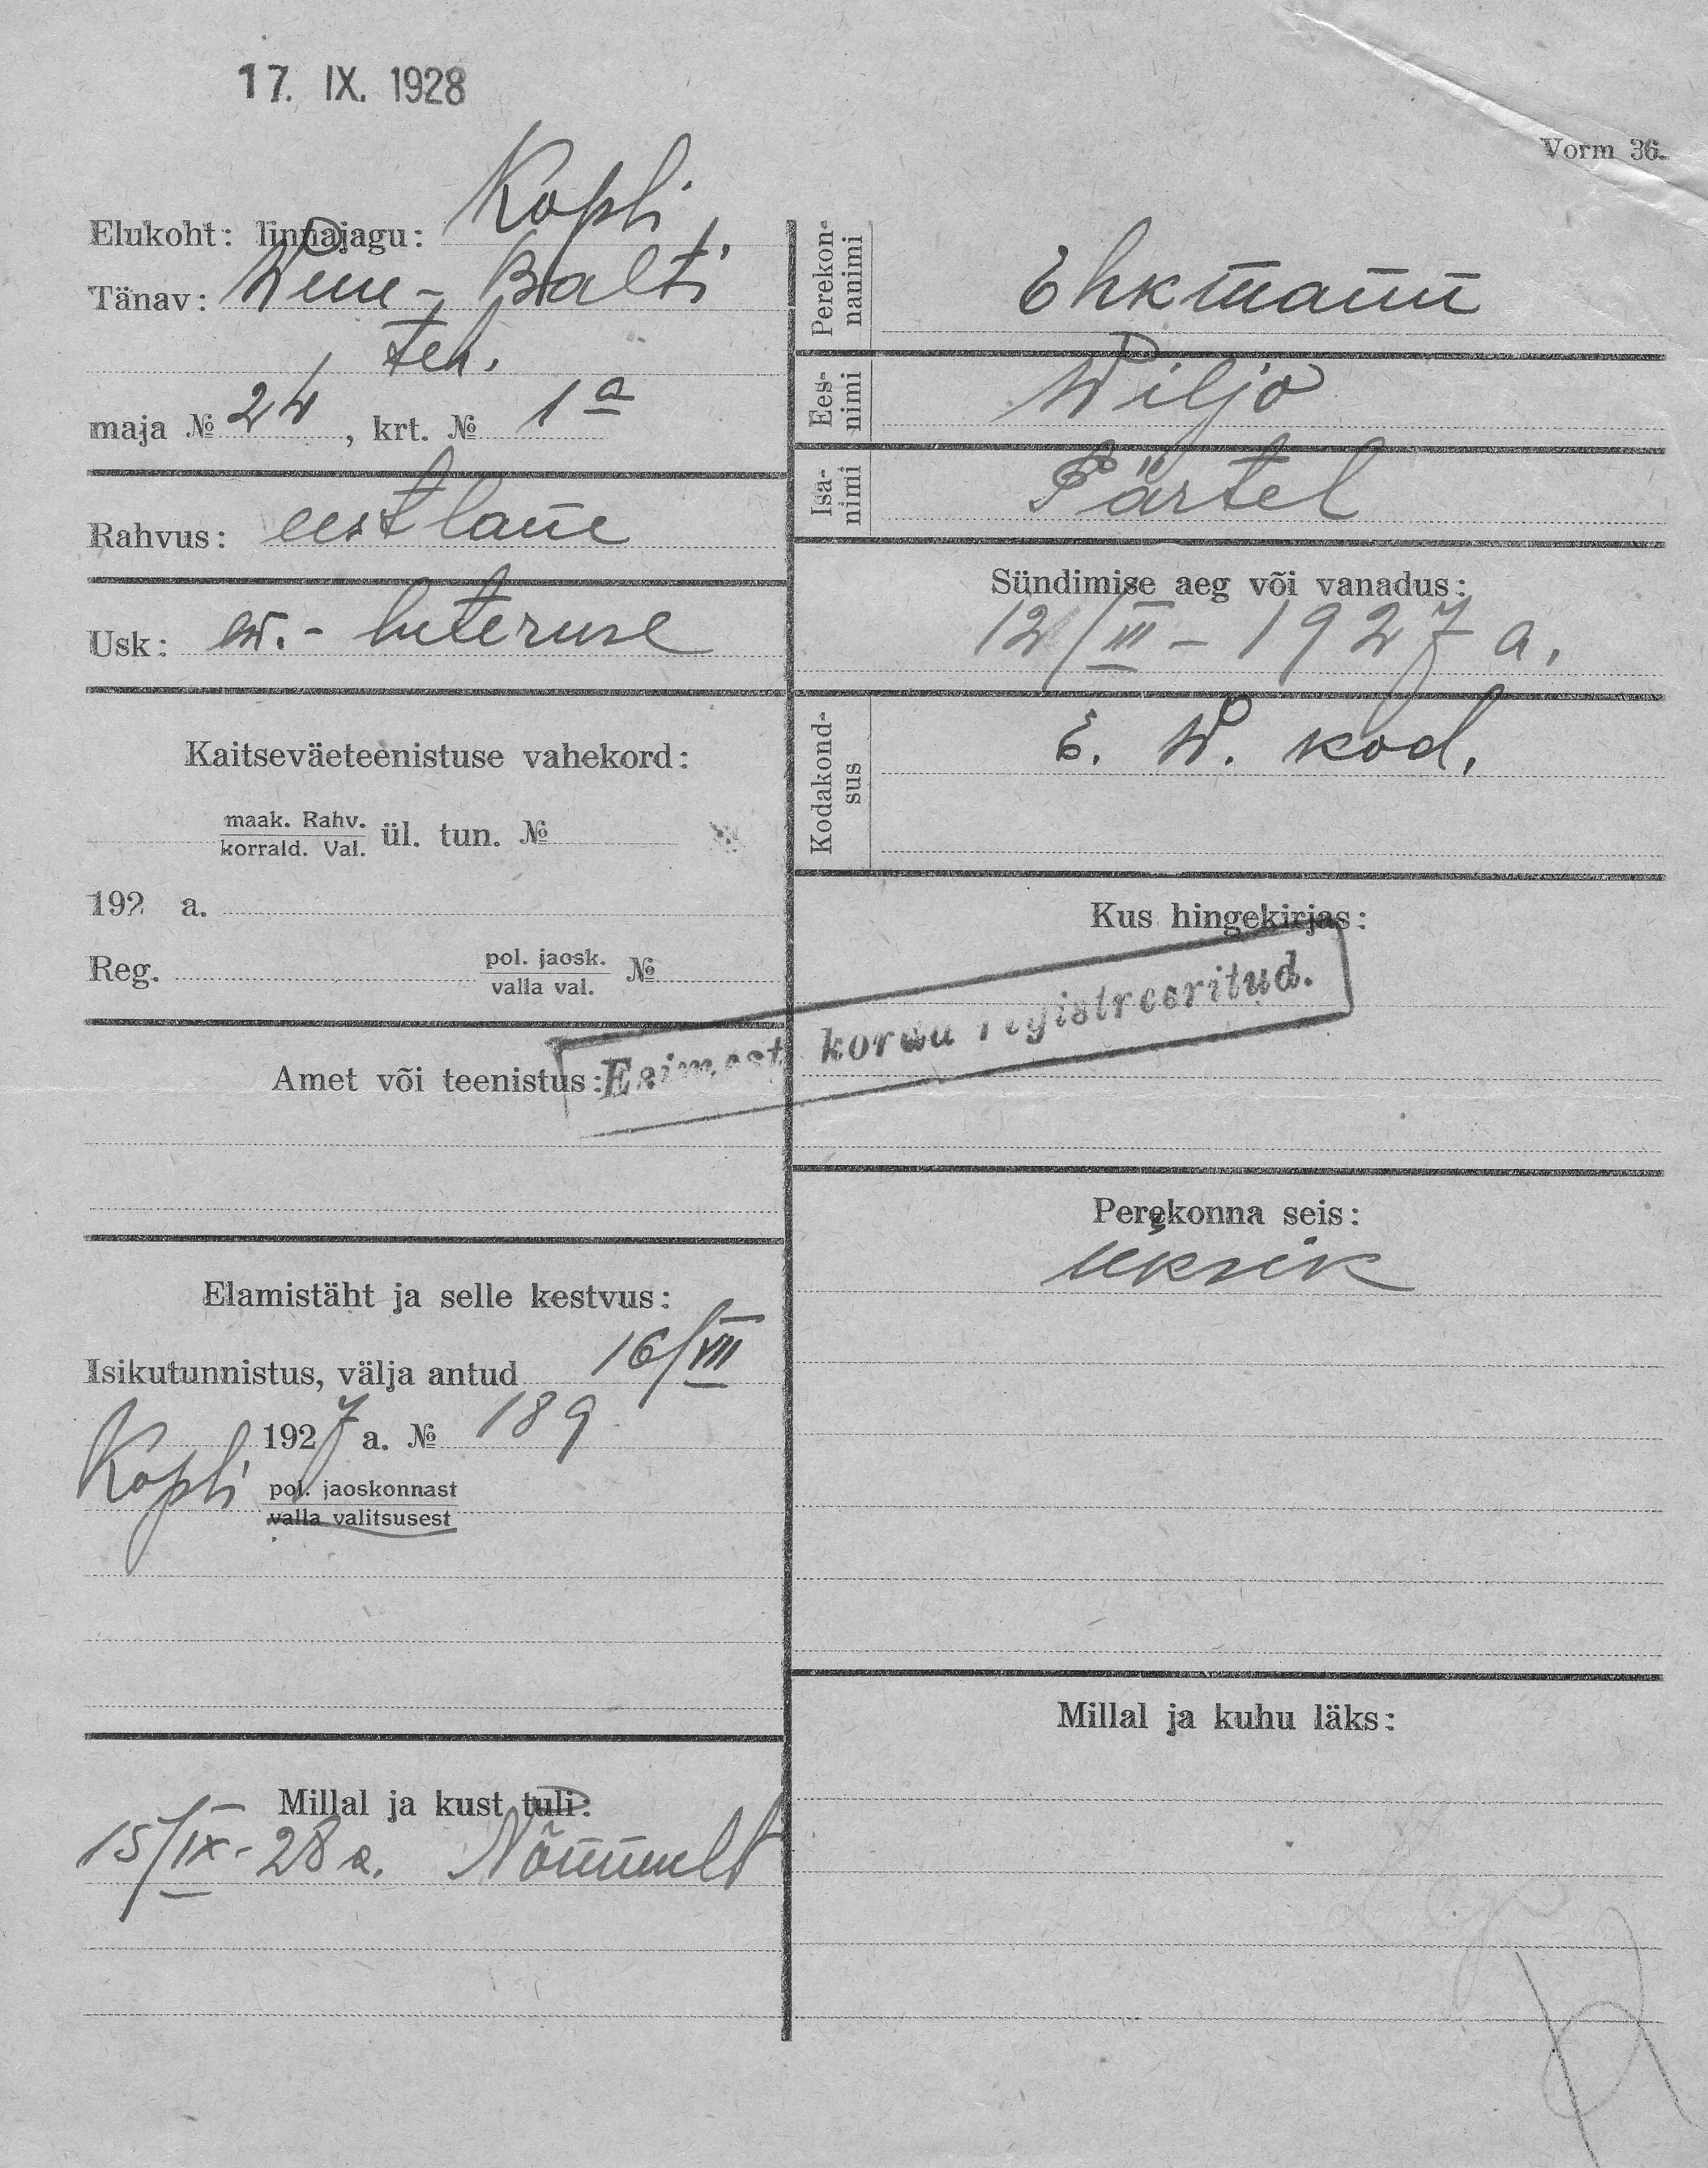 17. IX. 1928
Vorm 36.
Elukoht: linnajagu: Kopli
Tänav: Wene-Balti
teh.
maja № 24, krt. № 1a
Rahvus: eestlane
Usk: ew.-luteruse
Kaitseväeteenistuse vahekord:
maak. Rahv.
korrald. Val. ül. tun. №
192 a.
Reg. pol. jaosk. №
valla val.
Amet või teenistus:
Elamistäht ja selle kestvus:
Isikutunnistus, välja antud 16/VII
1927 a. № 189
Kopli pol. jaoskonnast
valla valitsusest
Millal ja kust tuli:
15/IX-28 a. Nõmmelt
Perekon-
nanimi
Ehkmann
Ees-
nimi
Wiljo
Isa-
nimi
Pärtel
Sündimise aeg või vanadus:
12/III-1927 a.
Kodakond-
sus
E. W. kod.
Kus hingekirjas:
Esimest korda registreeritud.
Perekonna seis:
üksik
Millal ja kuhu läks: